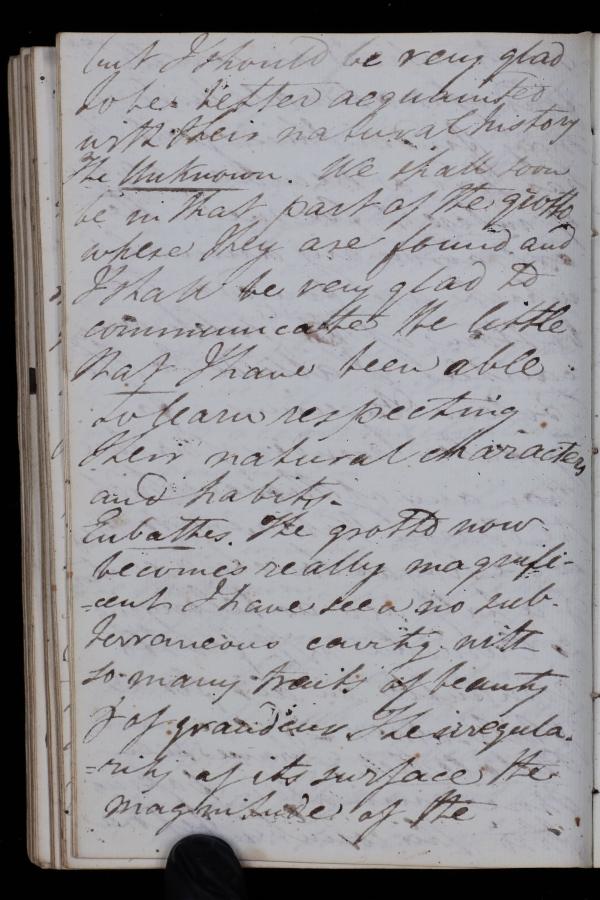 but I should be very glad
to be better acquainted
with their natural history
The Unknown. We shall soon
be in that part of the grotto
where they are found and
I shall be very glad to
communicate the little
that I have been able
to learn respecting
their natural characters
and habits.
Eubathes. The grotto now
becomes really magnifi-
=cent I have seen no sub-
terraneous cavity with
so many traits of beauty
& of grandeur. The irregula-
=rity of its surface the
magnitude of the